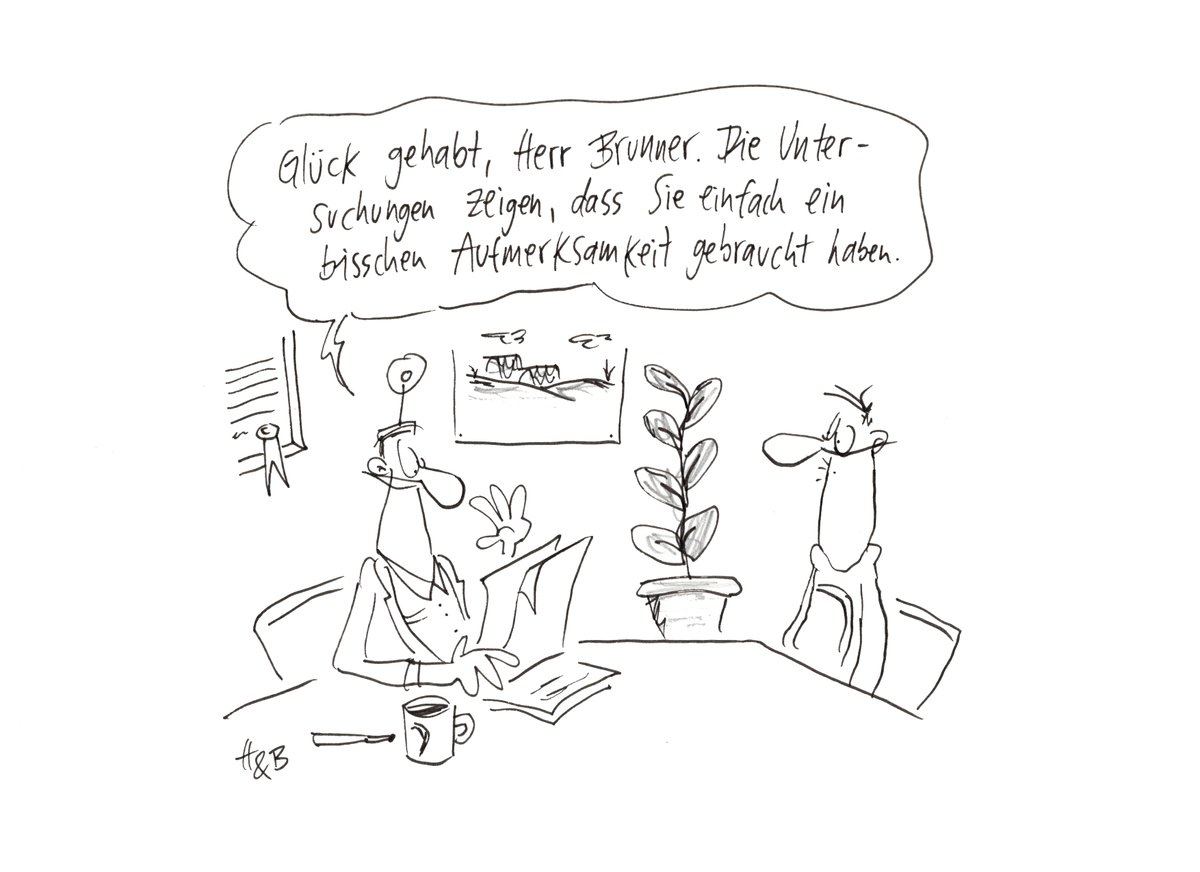 Glück gehabt, Herr Brunner. Die Unter-
suchungen zeigen, dass Sie einfach ein
bisschen Aufmerksamkeit gebraucht haben.
H&B